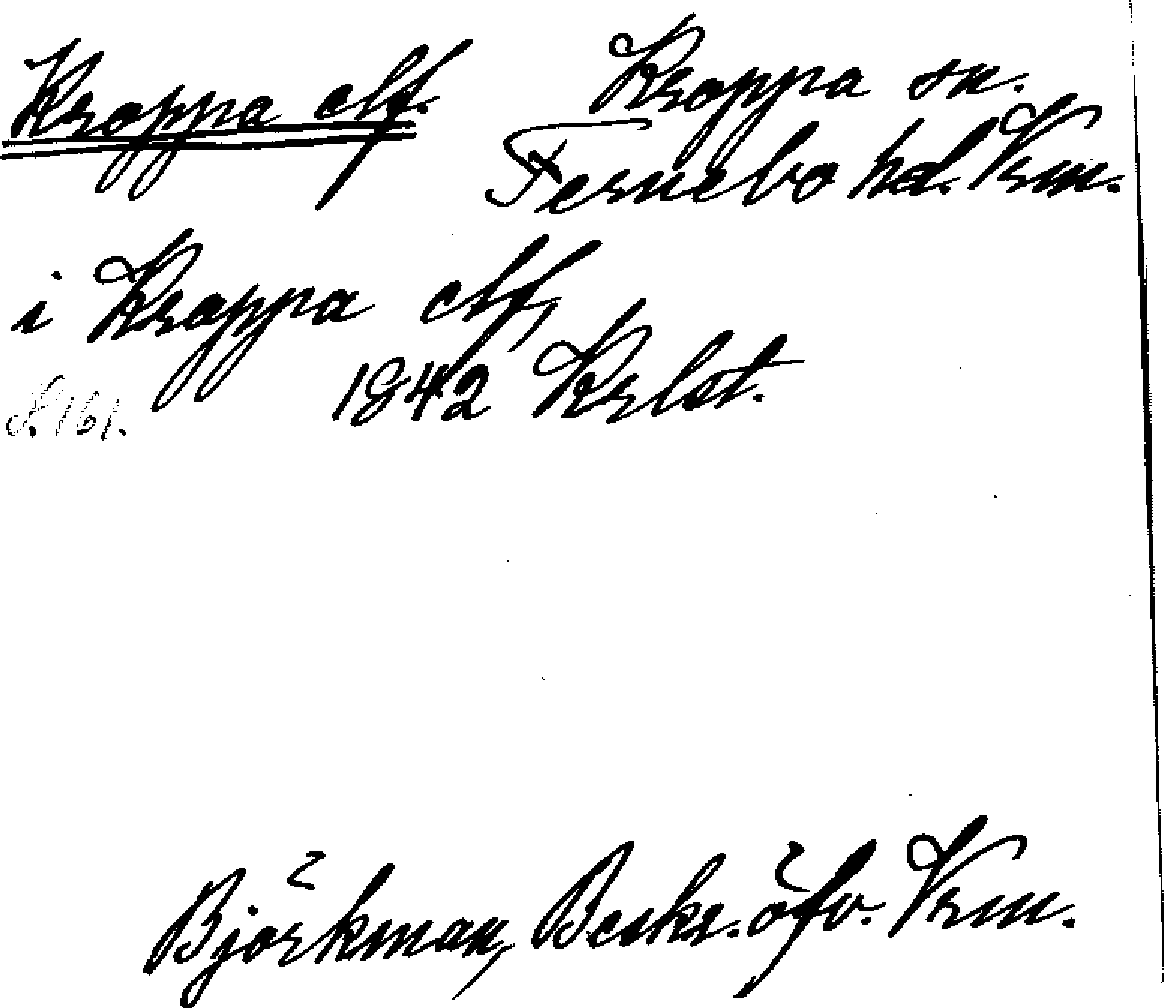 Kroppa clf. Kroppa sn.
Fernebo hd. Vrm.
i Kroppa clf,
S. 161. 1842 Krlst.
Björkman, Beskr. öfv. Vrm.